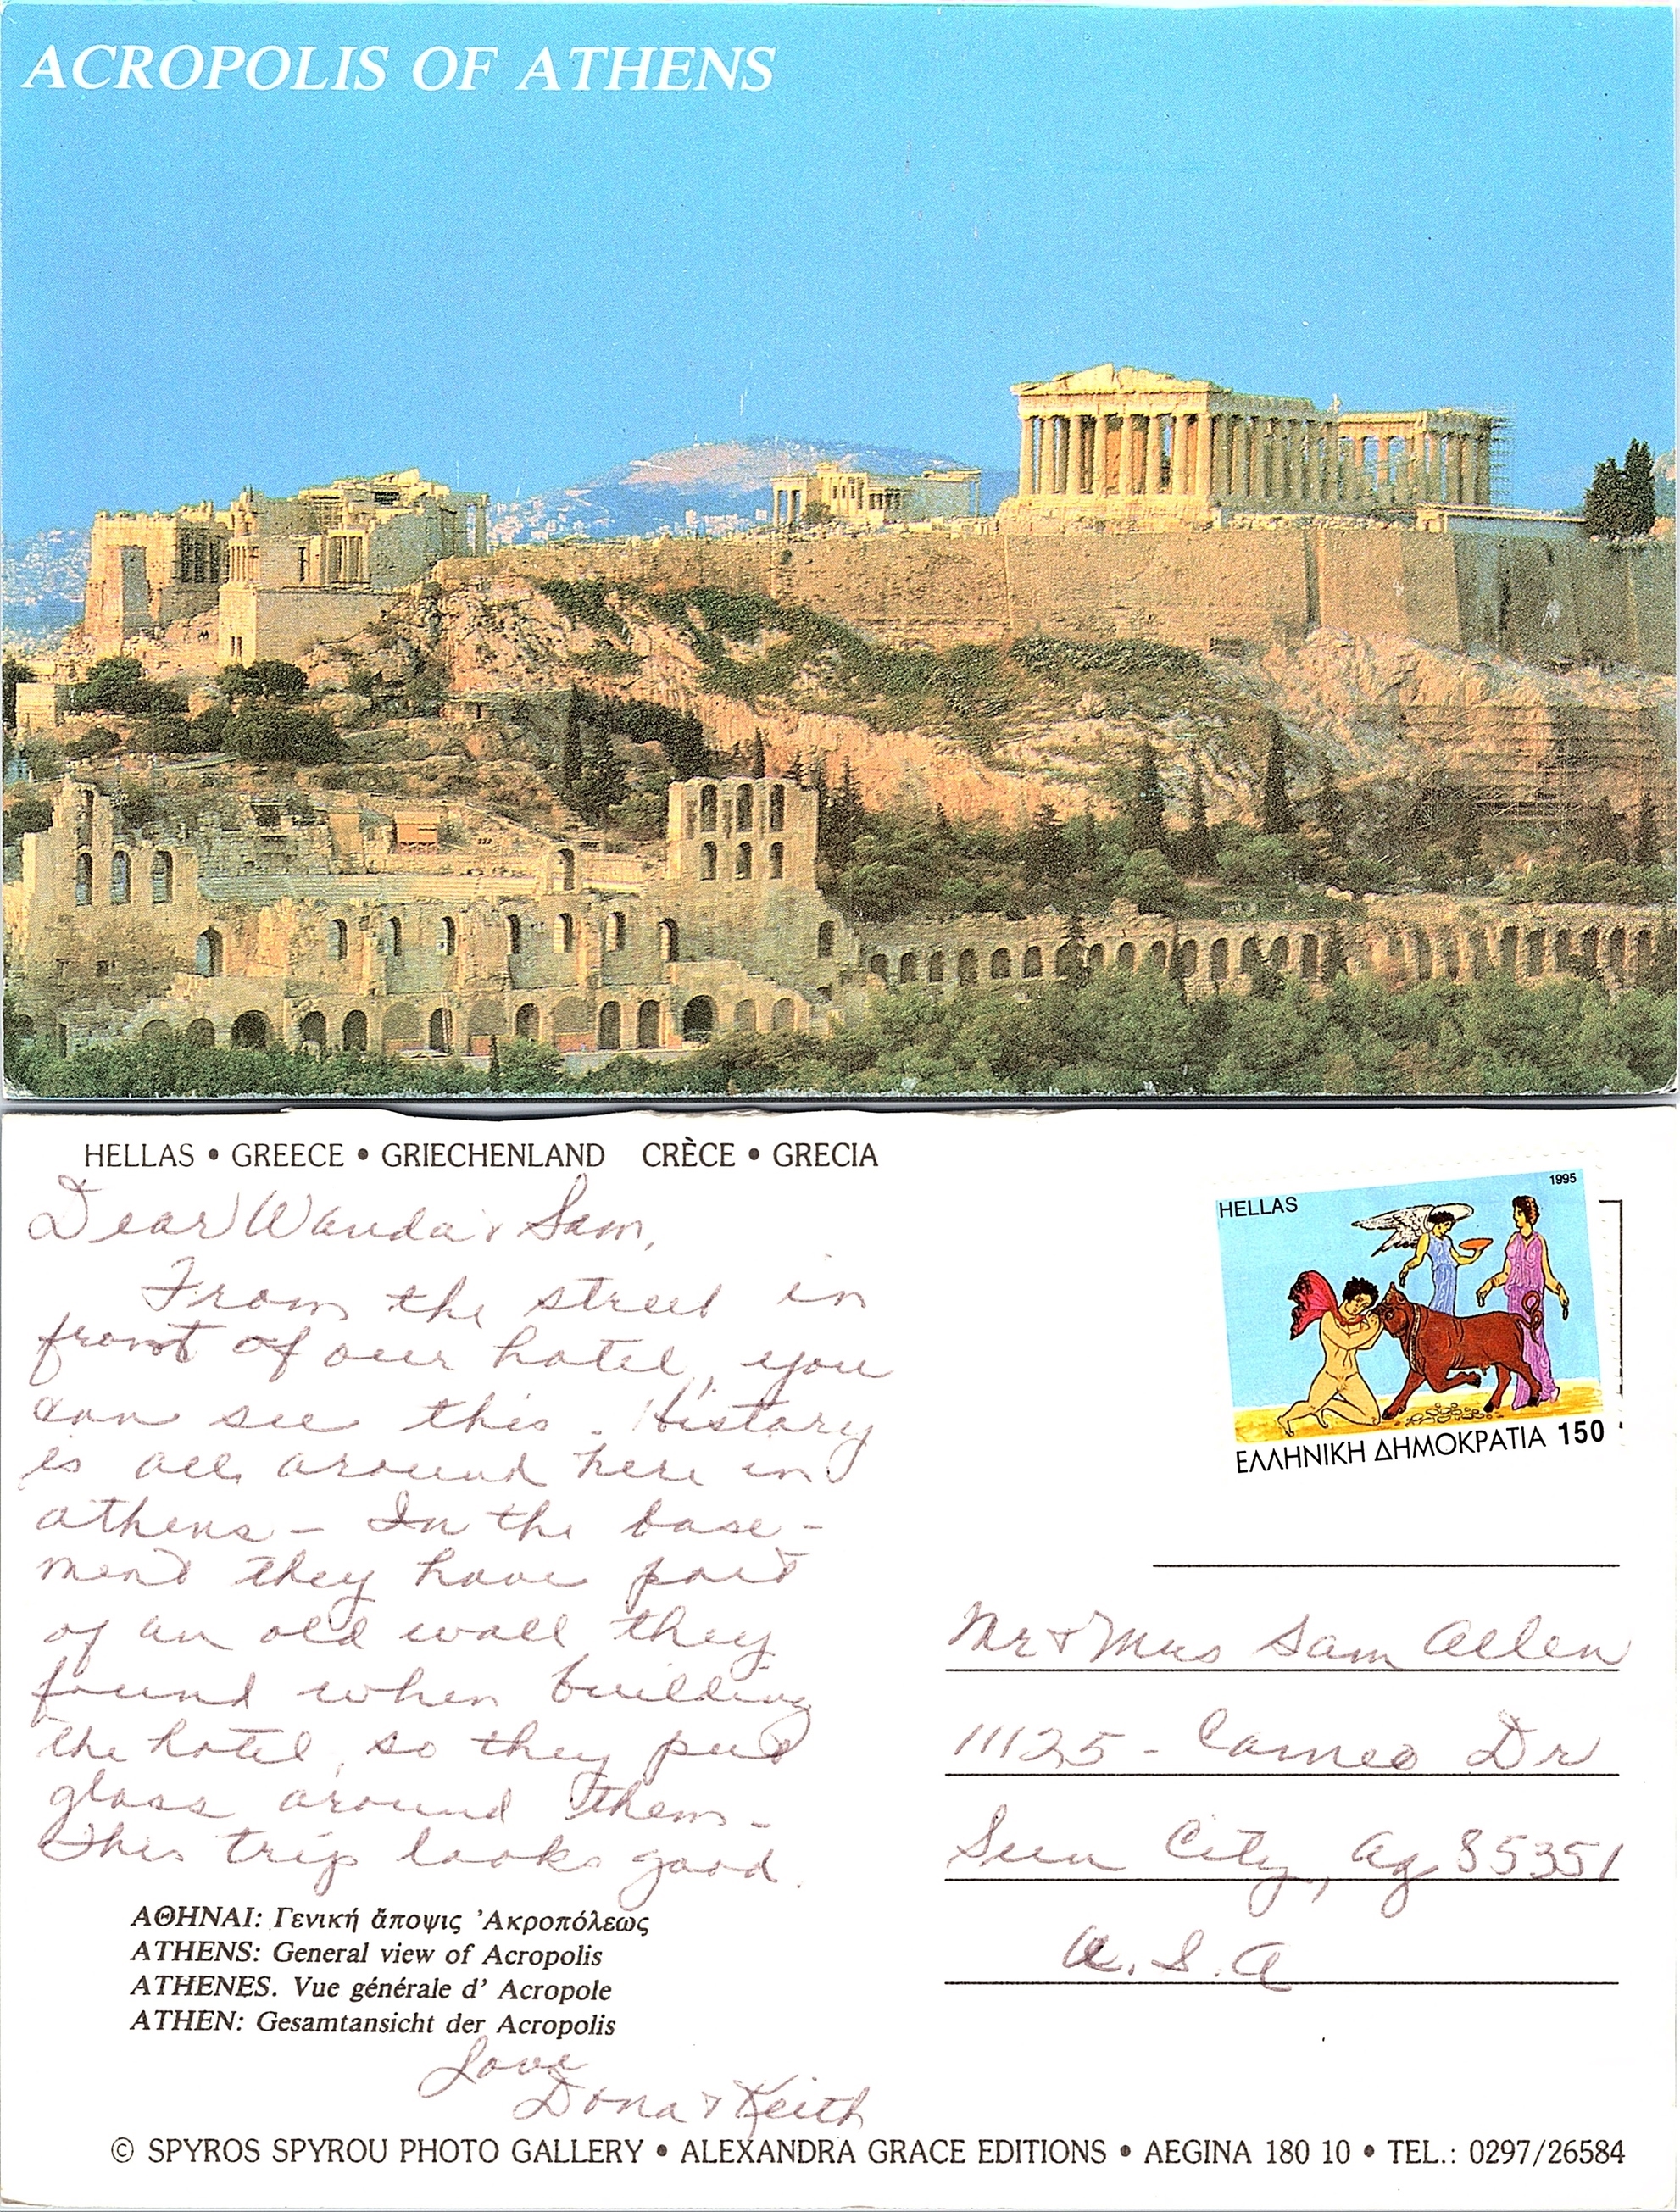 ACROPOLIS OF ATHENS
HELLAS • GREECE • GRIECHENLAND CRÈCE • GRECIA
HELLAS
1995
ΕΛΛΗΝΙΚΗ ΔΗΜΟΚΡΑΤΙΑ 150
Dear Wanda & Sam,
From the street in
front of our hotel, you
can see this. History
is all around here in
athens – In the base-
ment they have part
of an old wall they
found when building
the hotel, so they put
glass around them –
This trip looks good.
ΑΘΗΝΑΙ: Γενική ἄποψις 'Ακροπόλεως
ATHENS: General view of Acropolis
ATHENES. Vue générale d' Acropole
ATHEN: Gesamtansicht der Acropolis
Love
Dona & Keith
Mr & Mrs Sam Allen
11125 - Cameo Dr
Sun City, Az 85351
U.S.A
© SPYROS SPYROU PHOTO GALLERY • ALEXANDRA GRACE EDITIONS • AEGINA 180 10 • TEL.: 0297/26584